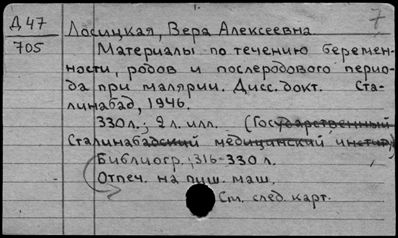 7
Д 47
705
Лосицкая, Вера Алексеевна
Материалы по течению беремен-
ности, родов и послеродового перио-
да при малярии. Дисс. докт. Ста-
линабад, 1946.
330 л.; 2 л. илл. (Государственный
Сталинабадский медицинский институт)
Библиогр.: 316-330 л.
Отпеч. на пиш. маш.
См. след. карт.